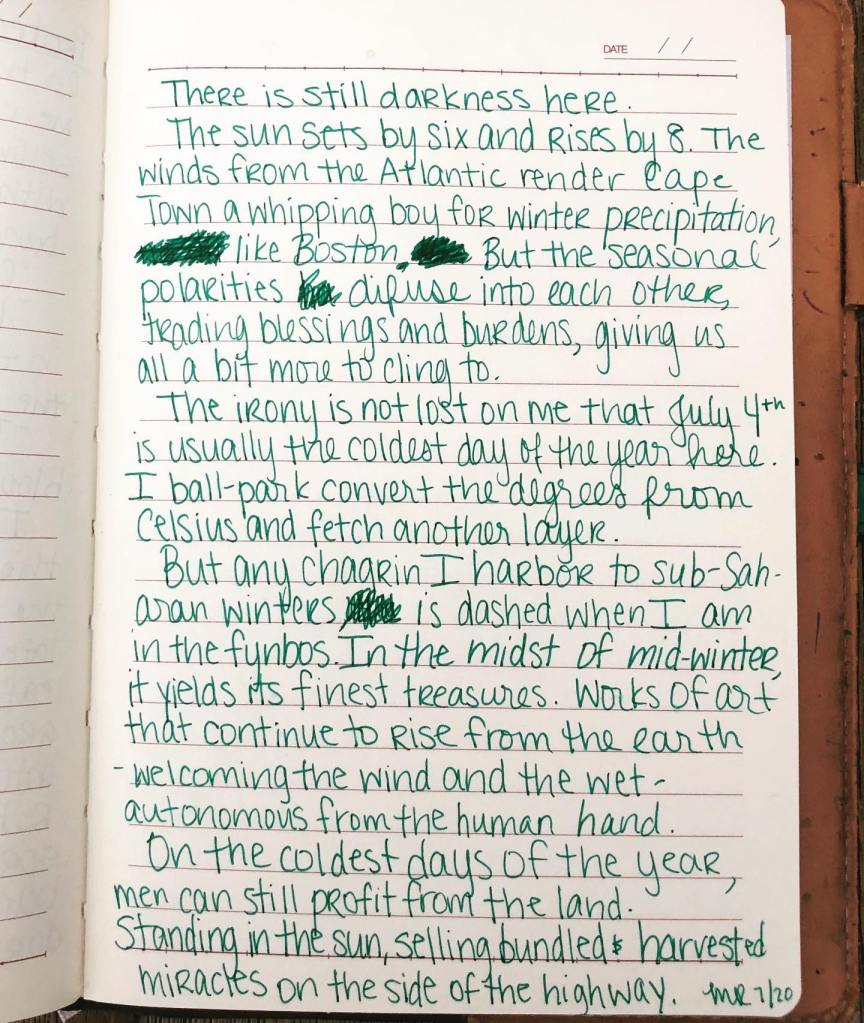 DATE / /
There is still darkness here.
The sun sets by six and rises by 8. The
winds from the Atlantic render Cape
Town a whipping boy for winter precipitation,
like Boston, But the seasonal
polarities difuse into each other,
trading blessings and burdens, giving us
all a bit more to cling to.
The irony is not lost on me that July 4th
is usually the coldest day of the year here.
I ball-park convert the degrees from
Celsius and fetch another layer.
But any chagrin I harbor to sub-Sah-
aran winters, is dashed when I am
in the fynbos. In the midst of mid-winter,
it yields its finest treasures. Works of art
that continue to rise from the earth
- welcoming the wind and the wet -
autonomous from the human hand.
On the coldest days of the year,
men can still profit from the land.
Standing in the sun, selling bundled & harvested
miracles on the side of the highway. MR 7/20